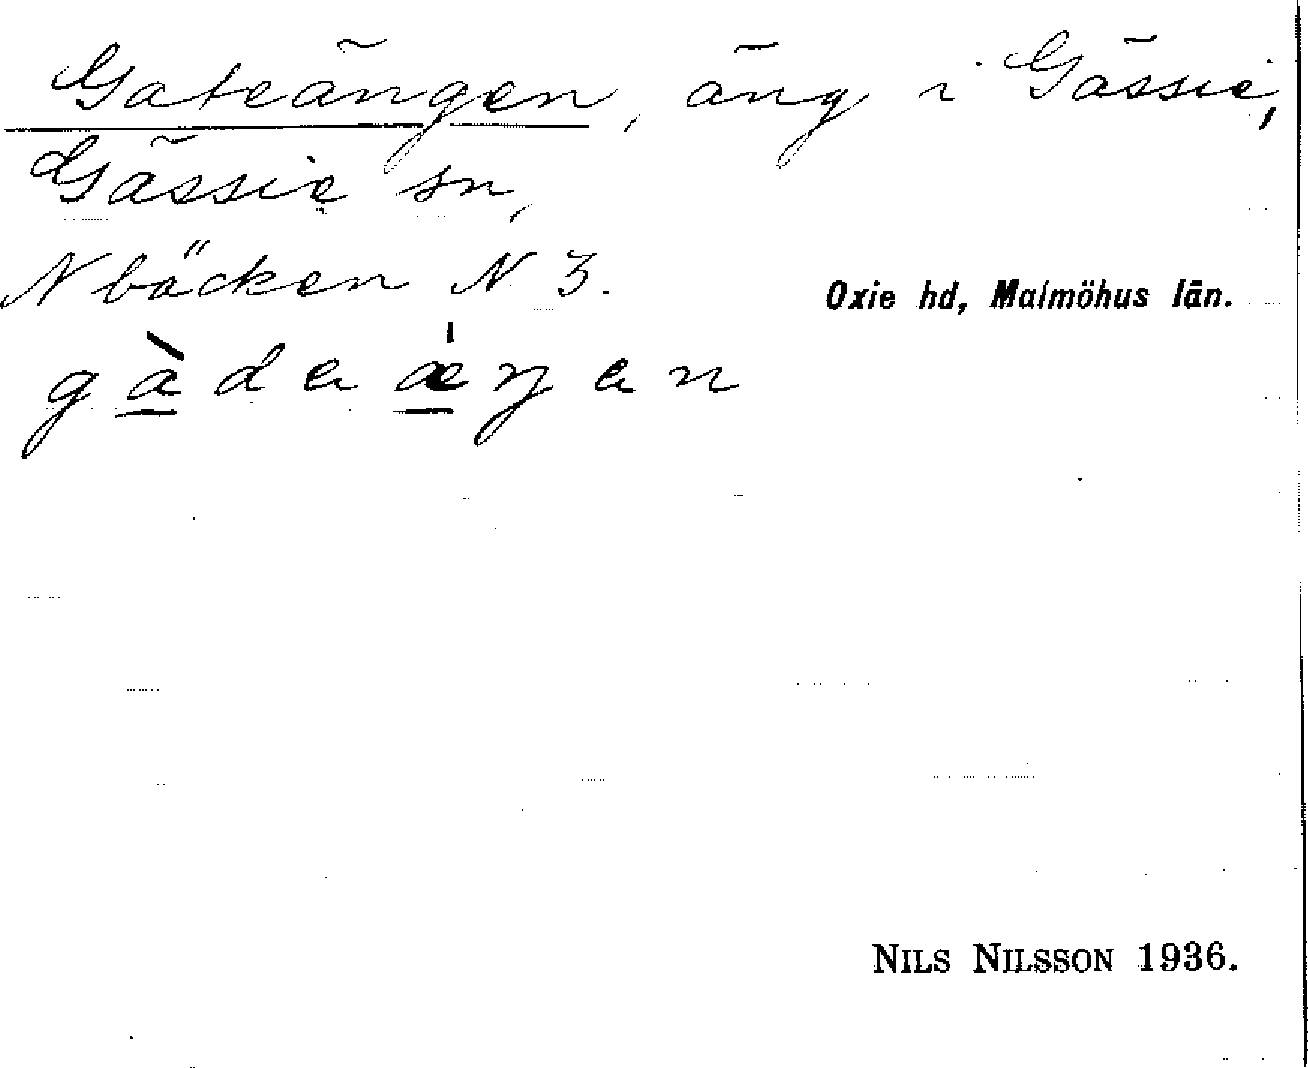 Gateängen, äng i Gässie,
Gässie sn,
N bäcken N 3.
Oxie hd, Malmöhus län.
gàdeǽŋen
NILS NILSSON 1936.